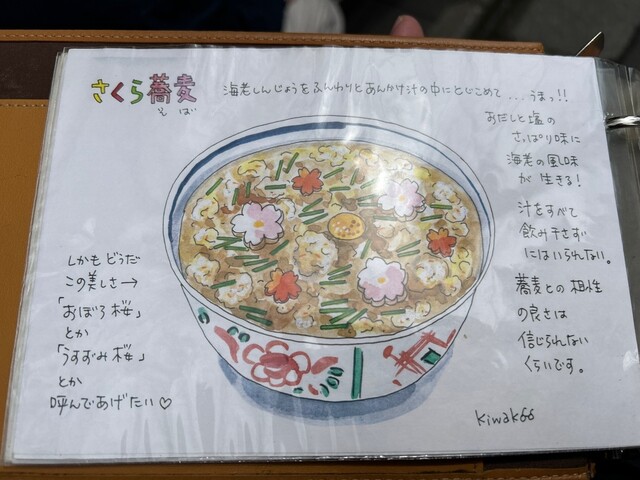 さくら蕎麦
そば
海老しんじょうをふんわりとあんかけ汁の中にとじこめて...うまっ!!
おだしと塩の
さっぱり味に
海老の風味
が生きる!
汁をすべて
飲み干さず
にはいられない。
蕎麦との相性
の良さは
信じられない
くらいです。
しかもどうだ
この美しさ→
「おぼろ桜」
とか
「うすずみ桜」
とか
呼んであげたい♡
kiwak66